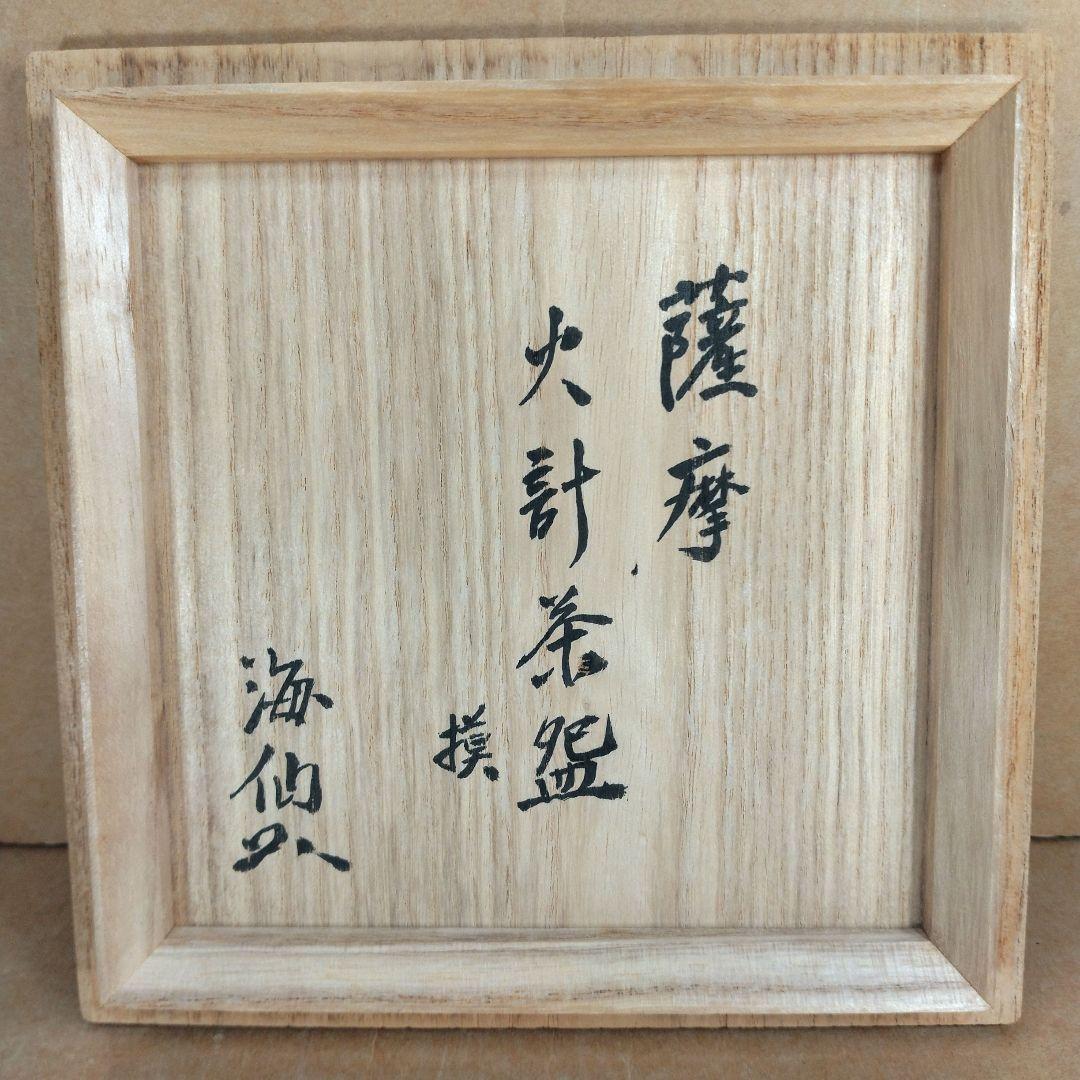 薩摩
火計茶盌
摸
海仙